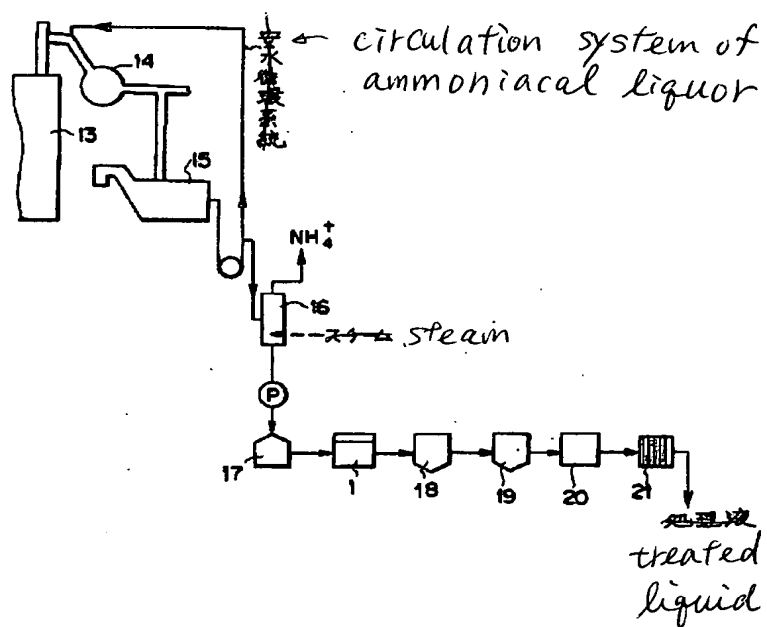 14
安水循環系統
circulation system of
ammoniacal liquor
13
15
NH₄⁺
16
スチーム steam
P
17
1
18
19
20
21
処理液
treated
liquid